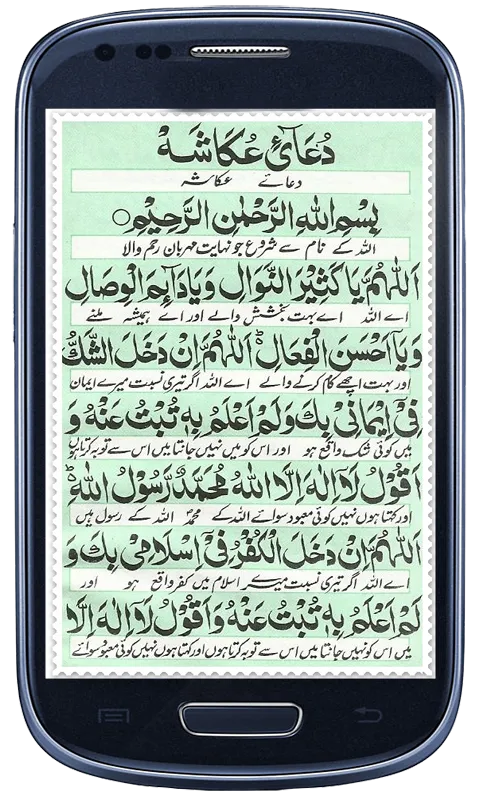 دُعَآئِ عُكَاشَهْ
دعائے عکاشہ
بِسْمِ اللهِ الرَّحْمٰنِ الرَّحِيْمِ○
اللہ کے نام سے شروع جو نہایت مہربان رحم والا
اَللّٰهُمَّ يَا كَثِيْرَ النَّوَالِ وَيَا دَآئِمَ الْوِصَالِ
اے اللہ اے بہت بخشش والے اور اے ہمیشہ ملنے
وَيَآ اَحْسَنَ الْفِعَالِ ؕ اَللّٰهُمَّ اِنْ دَخَلَ الشَّكُّ
اور بہت اچھے کام کرنے والے اے اللہ اگر تیری نسبت میرے ایمان
فِيْٓ اِيْمَانِيْ بِكَ وَلَمْ اَعْلَمْ بِهٖ تُبْتُ عَنْهُ وَ
میں کوئی شک واقع ہو اور اس کو میں نہیں جانتا میں اس سے توبہ کرتا ہوں
اَقُوْلُ لَآ اِلٰهَ اِلَّا اللهُ مُحَمَّدٌ رَّسُوْلُ اللهِ ؕ
اور کہتا ہوں نہیں کوئی معبود سوائے اللہ کے محمدؐ اللہ کے رسول ہیں
اَللّٰهُمَّ اِنْ دَخَلَ الْكُفْرُ فِيْٓ اِسْلَامِيْ بِكَ وَ
اے اللہ اگر تیری نسبت میرے اسلام میں کفر واقع ہو اور
لَمْ اَعْلَمْ بِهٖ تُبْتُ عَنْهُ وَاَقُوْلُ لَآ اِلٰهَ اِلَّا
میں اس کو نہیں جانتا میں اس سے توبہ کرتا ہوں اور کہتا ہوں نہیں کوئی معبود سوائے